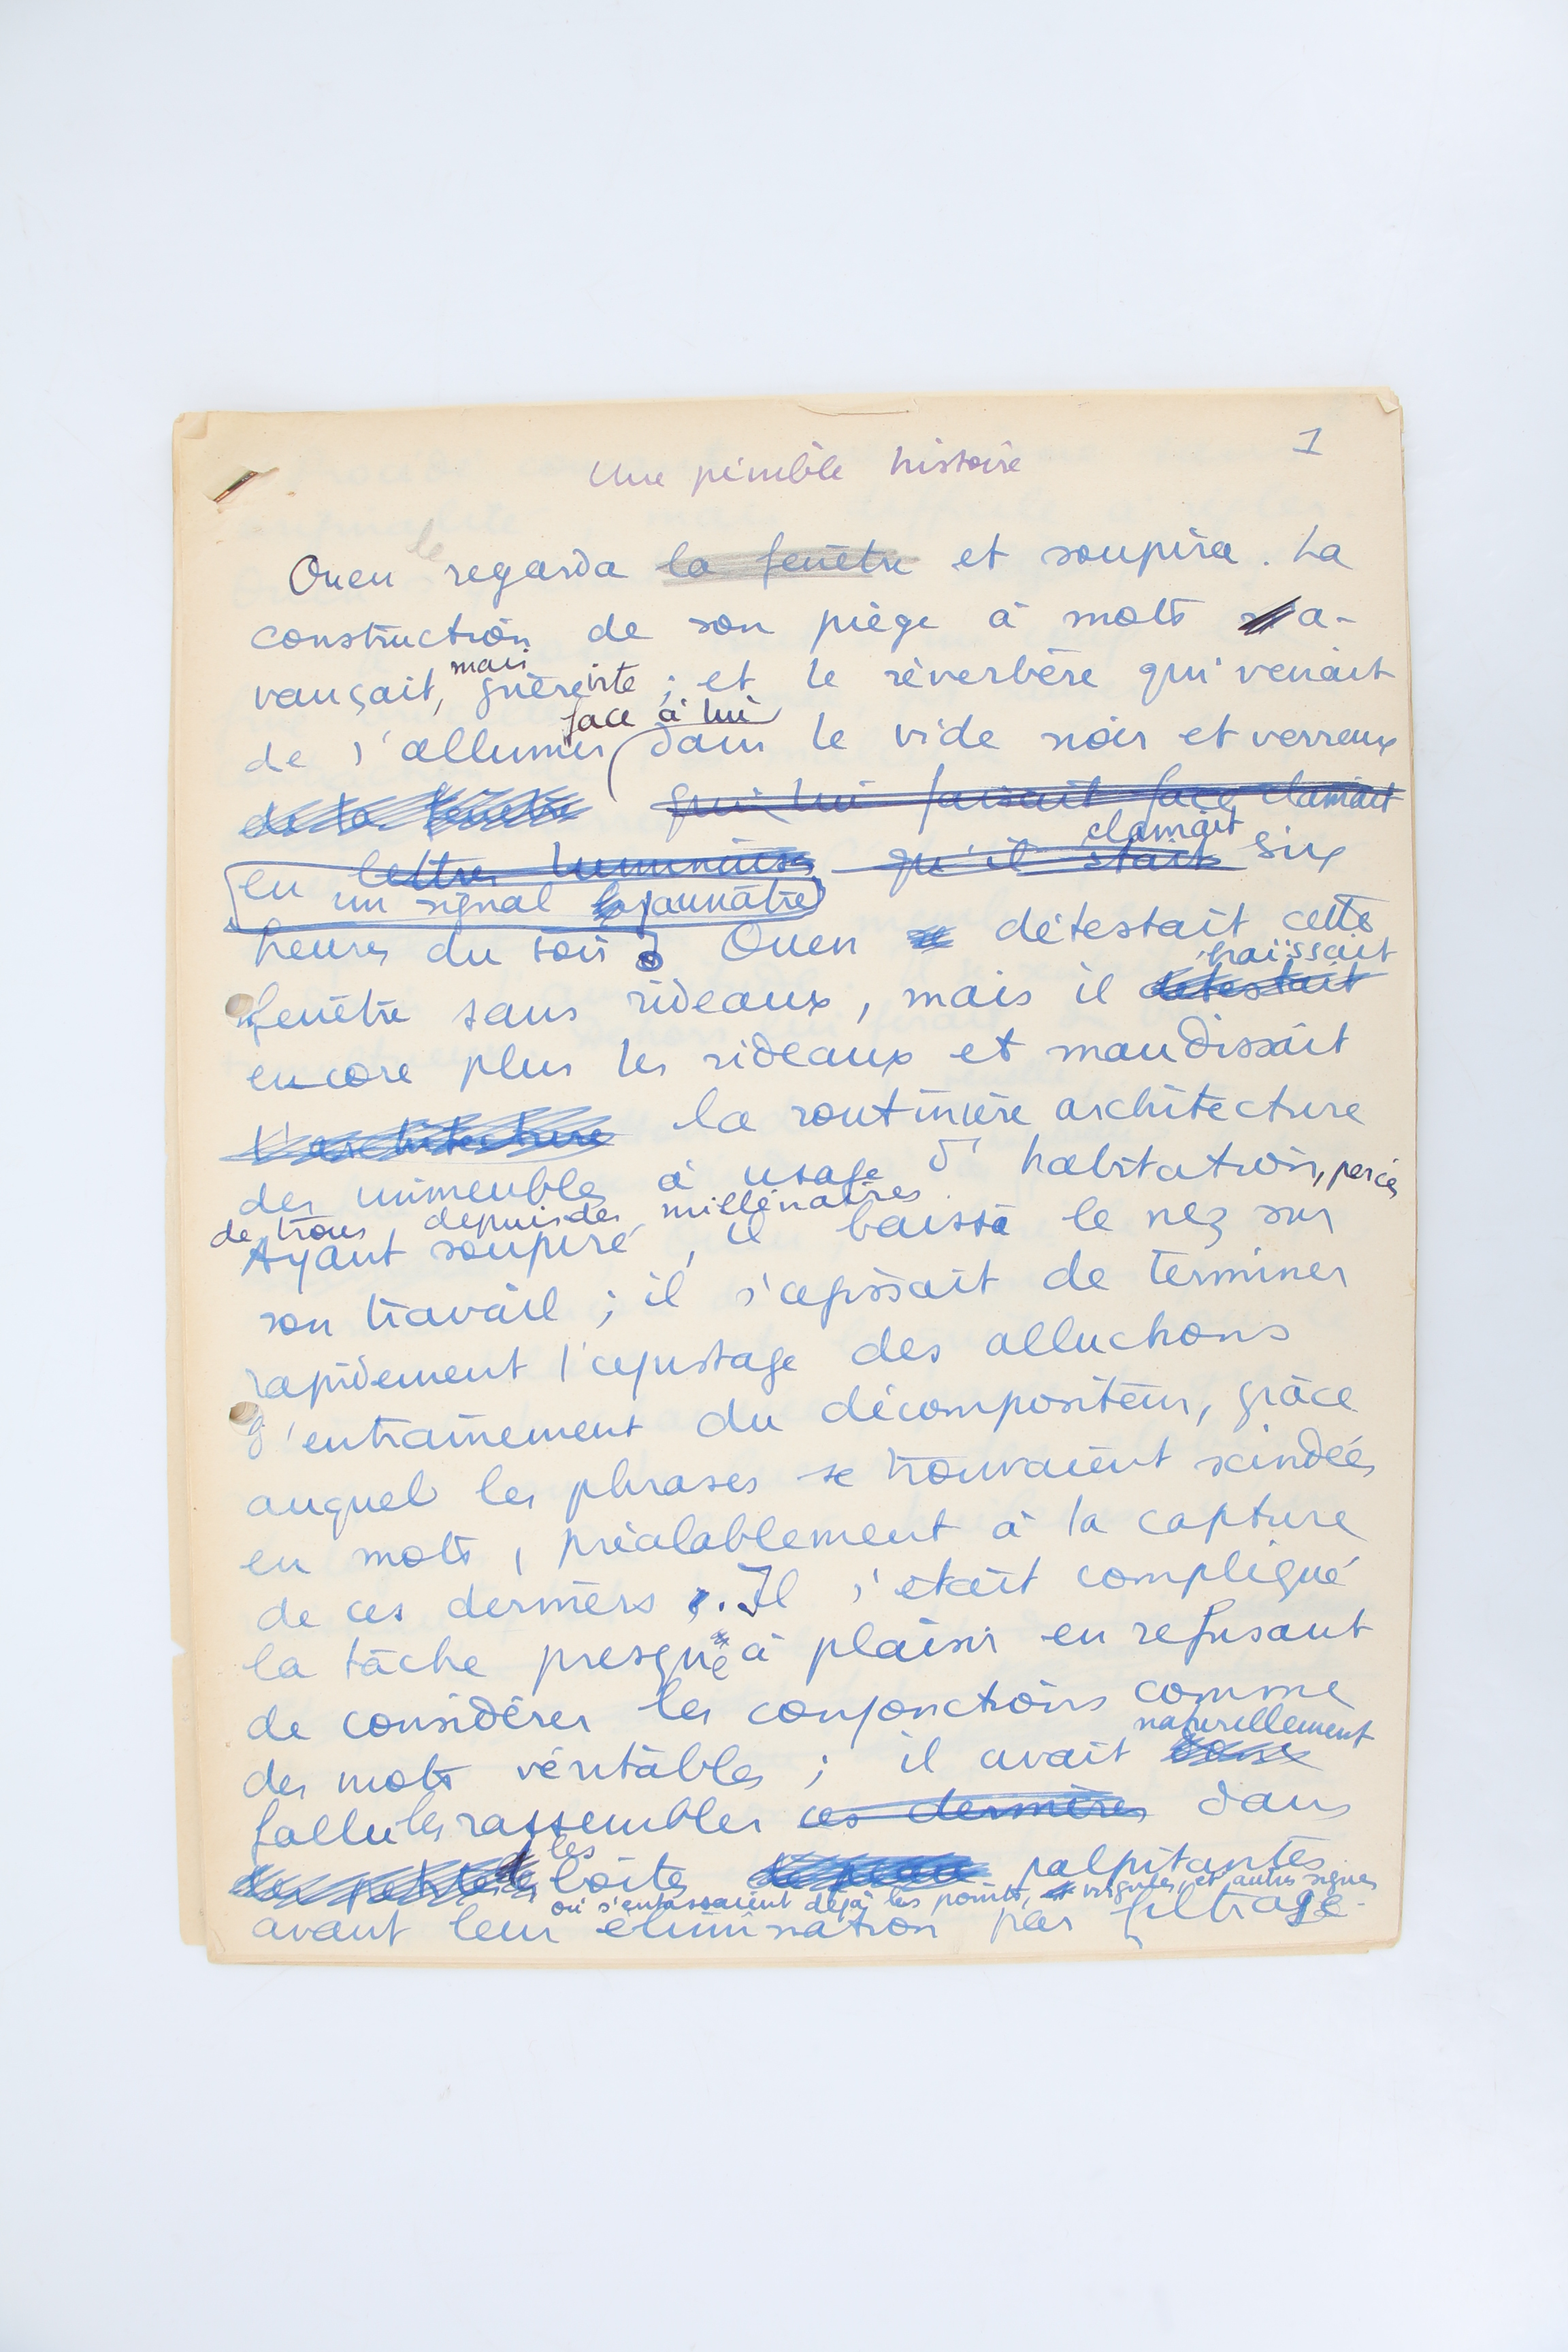 Une pénible histoire
1
Ouen regarda la fenêtre et soupira. La
le
construction de son piège à mots a-
vançait, mais guère vite ; et le réverbère qui venait
de s'allumer face à lui dans le vide noir et verreux
de la fenêtre qui lui faisait face clamait
en lettres lumineuses qu'il était clamait six
un signal jaunâtre
heures du soir. Ouen détestait cette
fenêtre sans rideaux, mais il détestait haïssait
encore plus les rideaux et maudissait
l'architecture la routinière architecture
des immeubles à usage d'habitation, percés
de trous, depuis des millénaires.
Ayant soupiré, il baissa le nez sur
son travail ; il s'agissait de terminer
rapidement l'ajustage des alluchons
d'entraînement du décompositeur, grâce
auquel les phrases se trouvaient scindées
en mots, préalablement à la capture
de ces derniers. Il s'était compliqué
la tâche presque à plaisir en refusant
de considérer les conjonctions comme
des mots véritables ; il avait naturellement
fallu les rassembler ces dernières dans
des petites les boîtes de peau palpitantes
où s'entassaient déjà les points, virgules, et autres signes
avant leur élimination par filtrage.